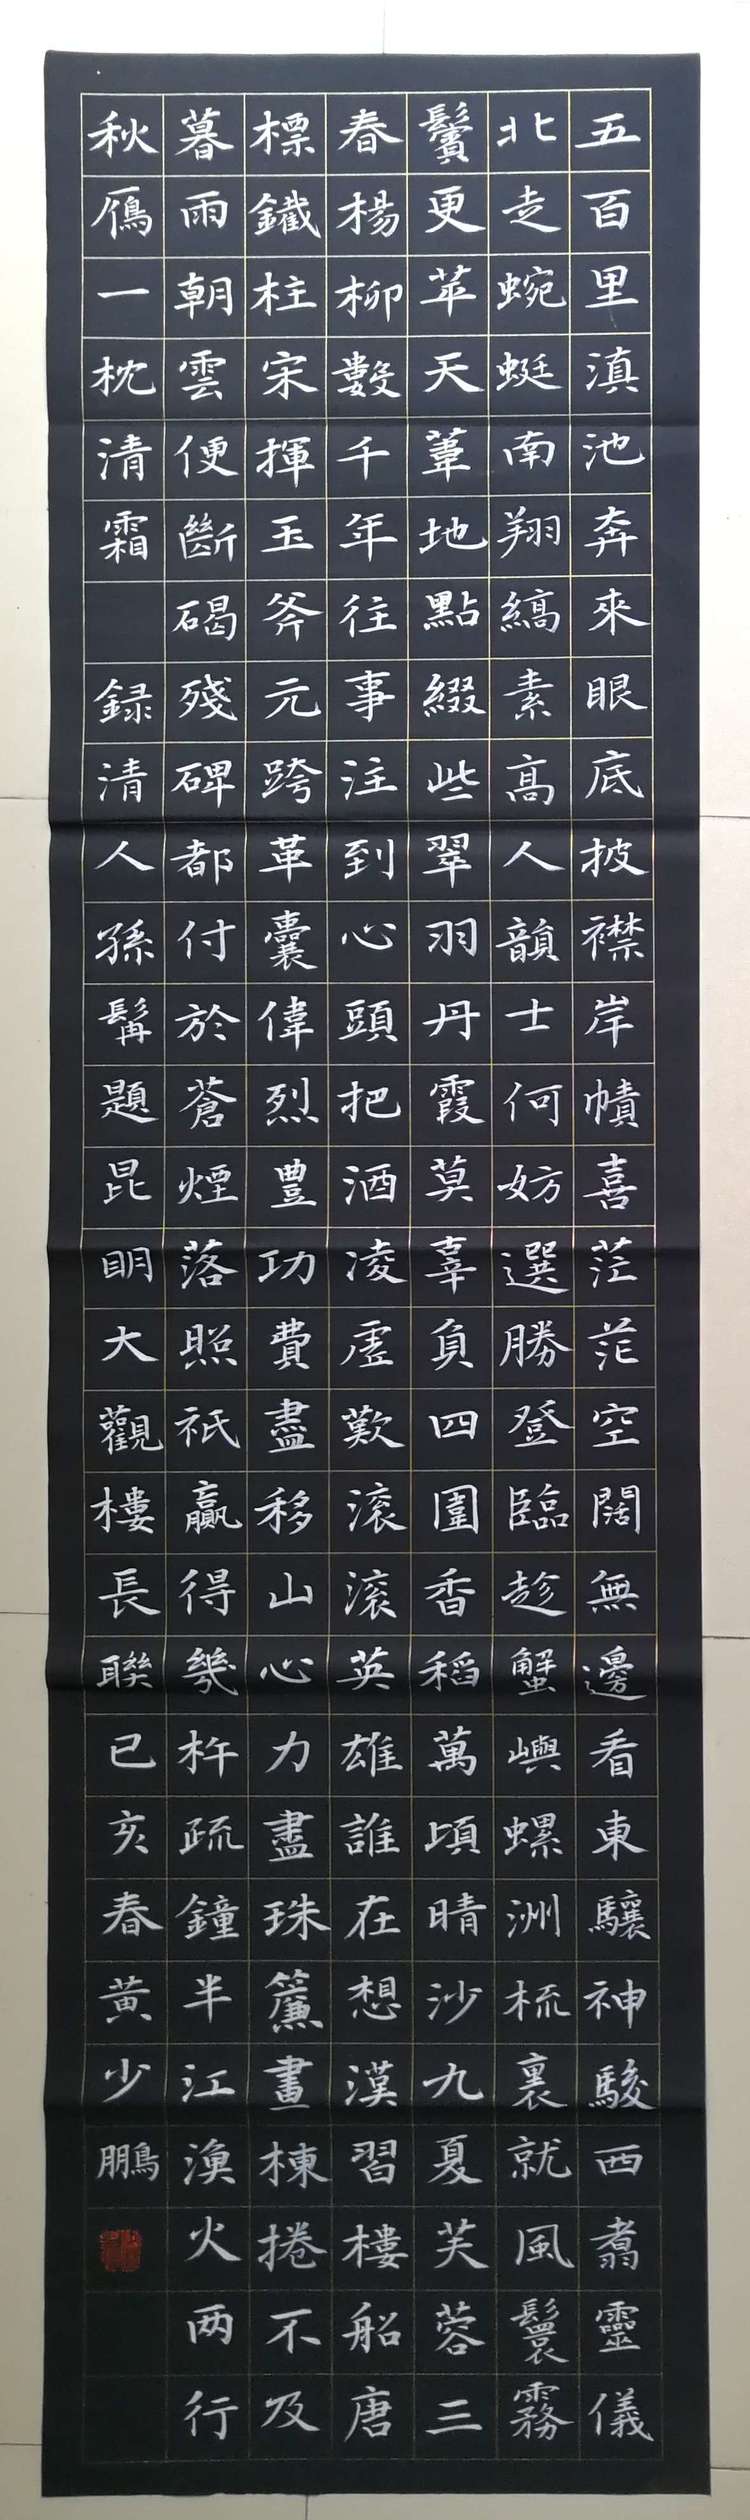 五百里滇池奔來眼底披襟岸幘喜茫茫空闊無邊看東驤神駿西翥靈儀
北走蜿蜒南翔縞素高人韻士何妨選勝登臨趁蟹嶼螺洲梳裹就風鬟霧
鬢更苹天葦地點綴些翠羽丹霞莫辜負四圍香稻萬頃晴沙九夏芙蓉三
春楊柳數千年往事注到心頭把酒凌虛歎滾滾英雄誰在想漢習樓船唐
標鐵柱宋揮玉斧元跨革囊偉烈豐功費盡移山心力盡珠簾畫棟捲不及
暮雨朝雲便斷碣殘碑都付於蒼煙落照祇贏得幾杵疏鐘半江漁火两行
秋鴈一枕清霜 録清人孫髯題昆明大觀樓長聯已亥春黃少鵬